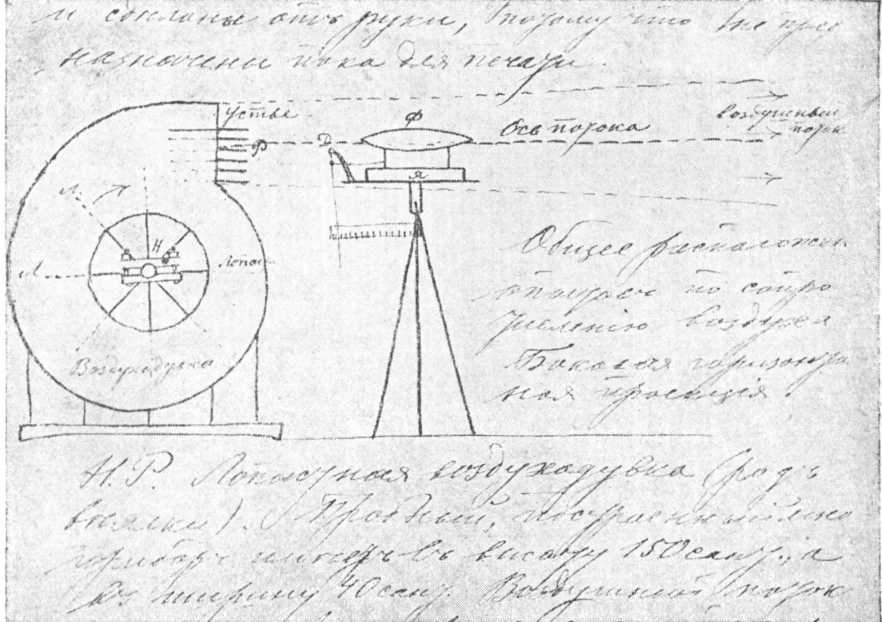 и сделаны отъ руки, потому что не пред
назначены пока для печати.
Устье
Ф
Ось потока
Воздушный
поток
Р
Д
Я
Л
Н
Л
Лопас
Воздуходувка
Общее расположен
опытах по сопро
тивлению воздуха
Боковая горизонта
ная проекція.
Н. Р. Лопастная воздуходувка (родъ
веялки). Пробный, построенный мно
въ высоту 150 сант., а
въ ширину 40 сант. Воздушный поток